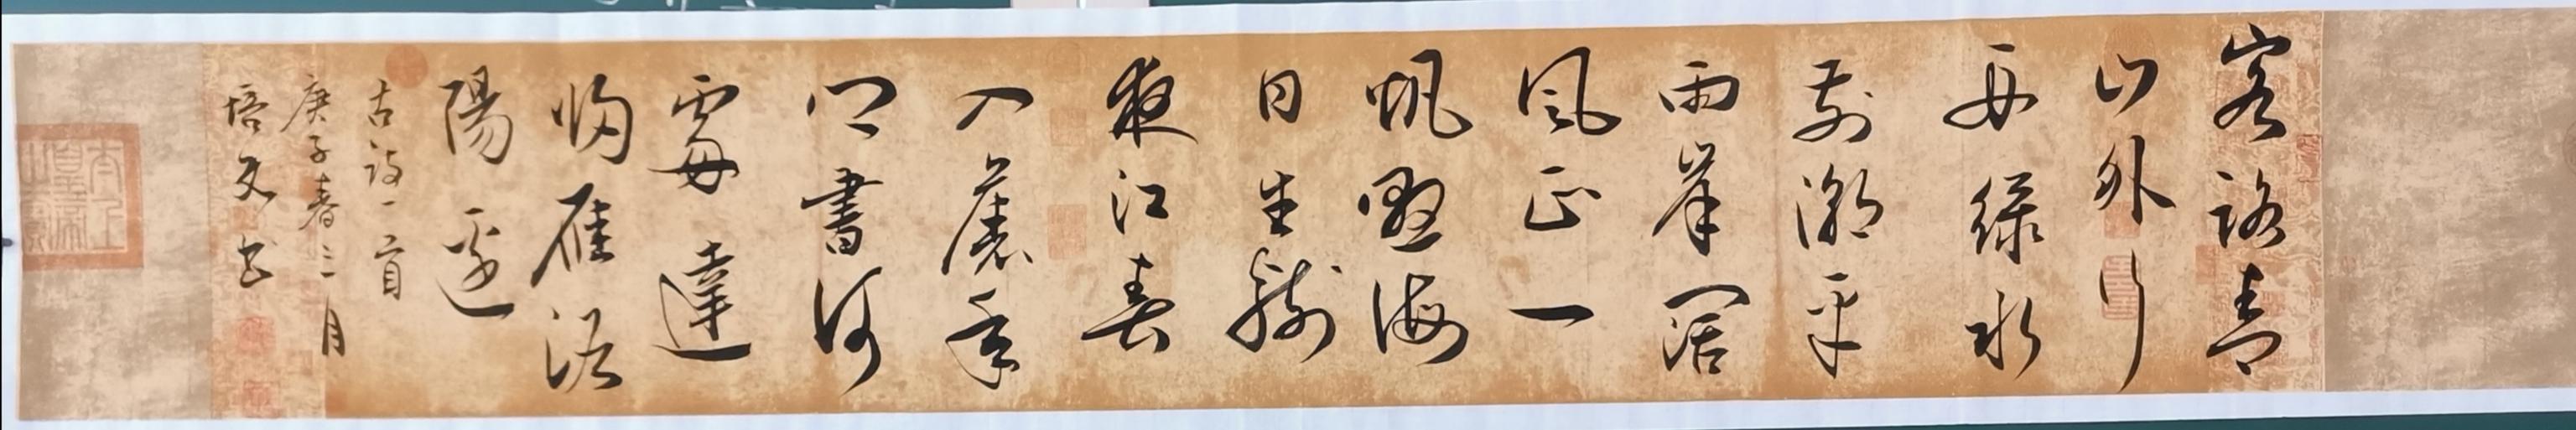 客路青
山外行
舟綠水
前潮平
兩岸闊
風正一
帆懸海
日生殘
夜江春
入舊年
鄉書何
處達
歸雁洛
陽邊
古詩一首
庚子春三月
培文书